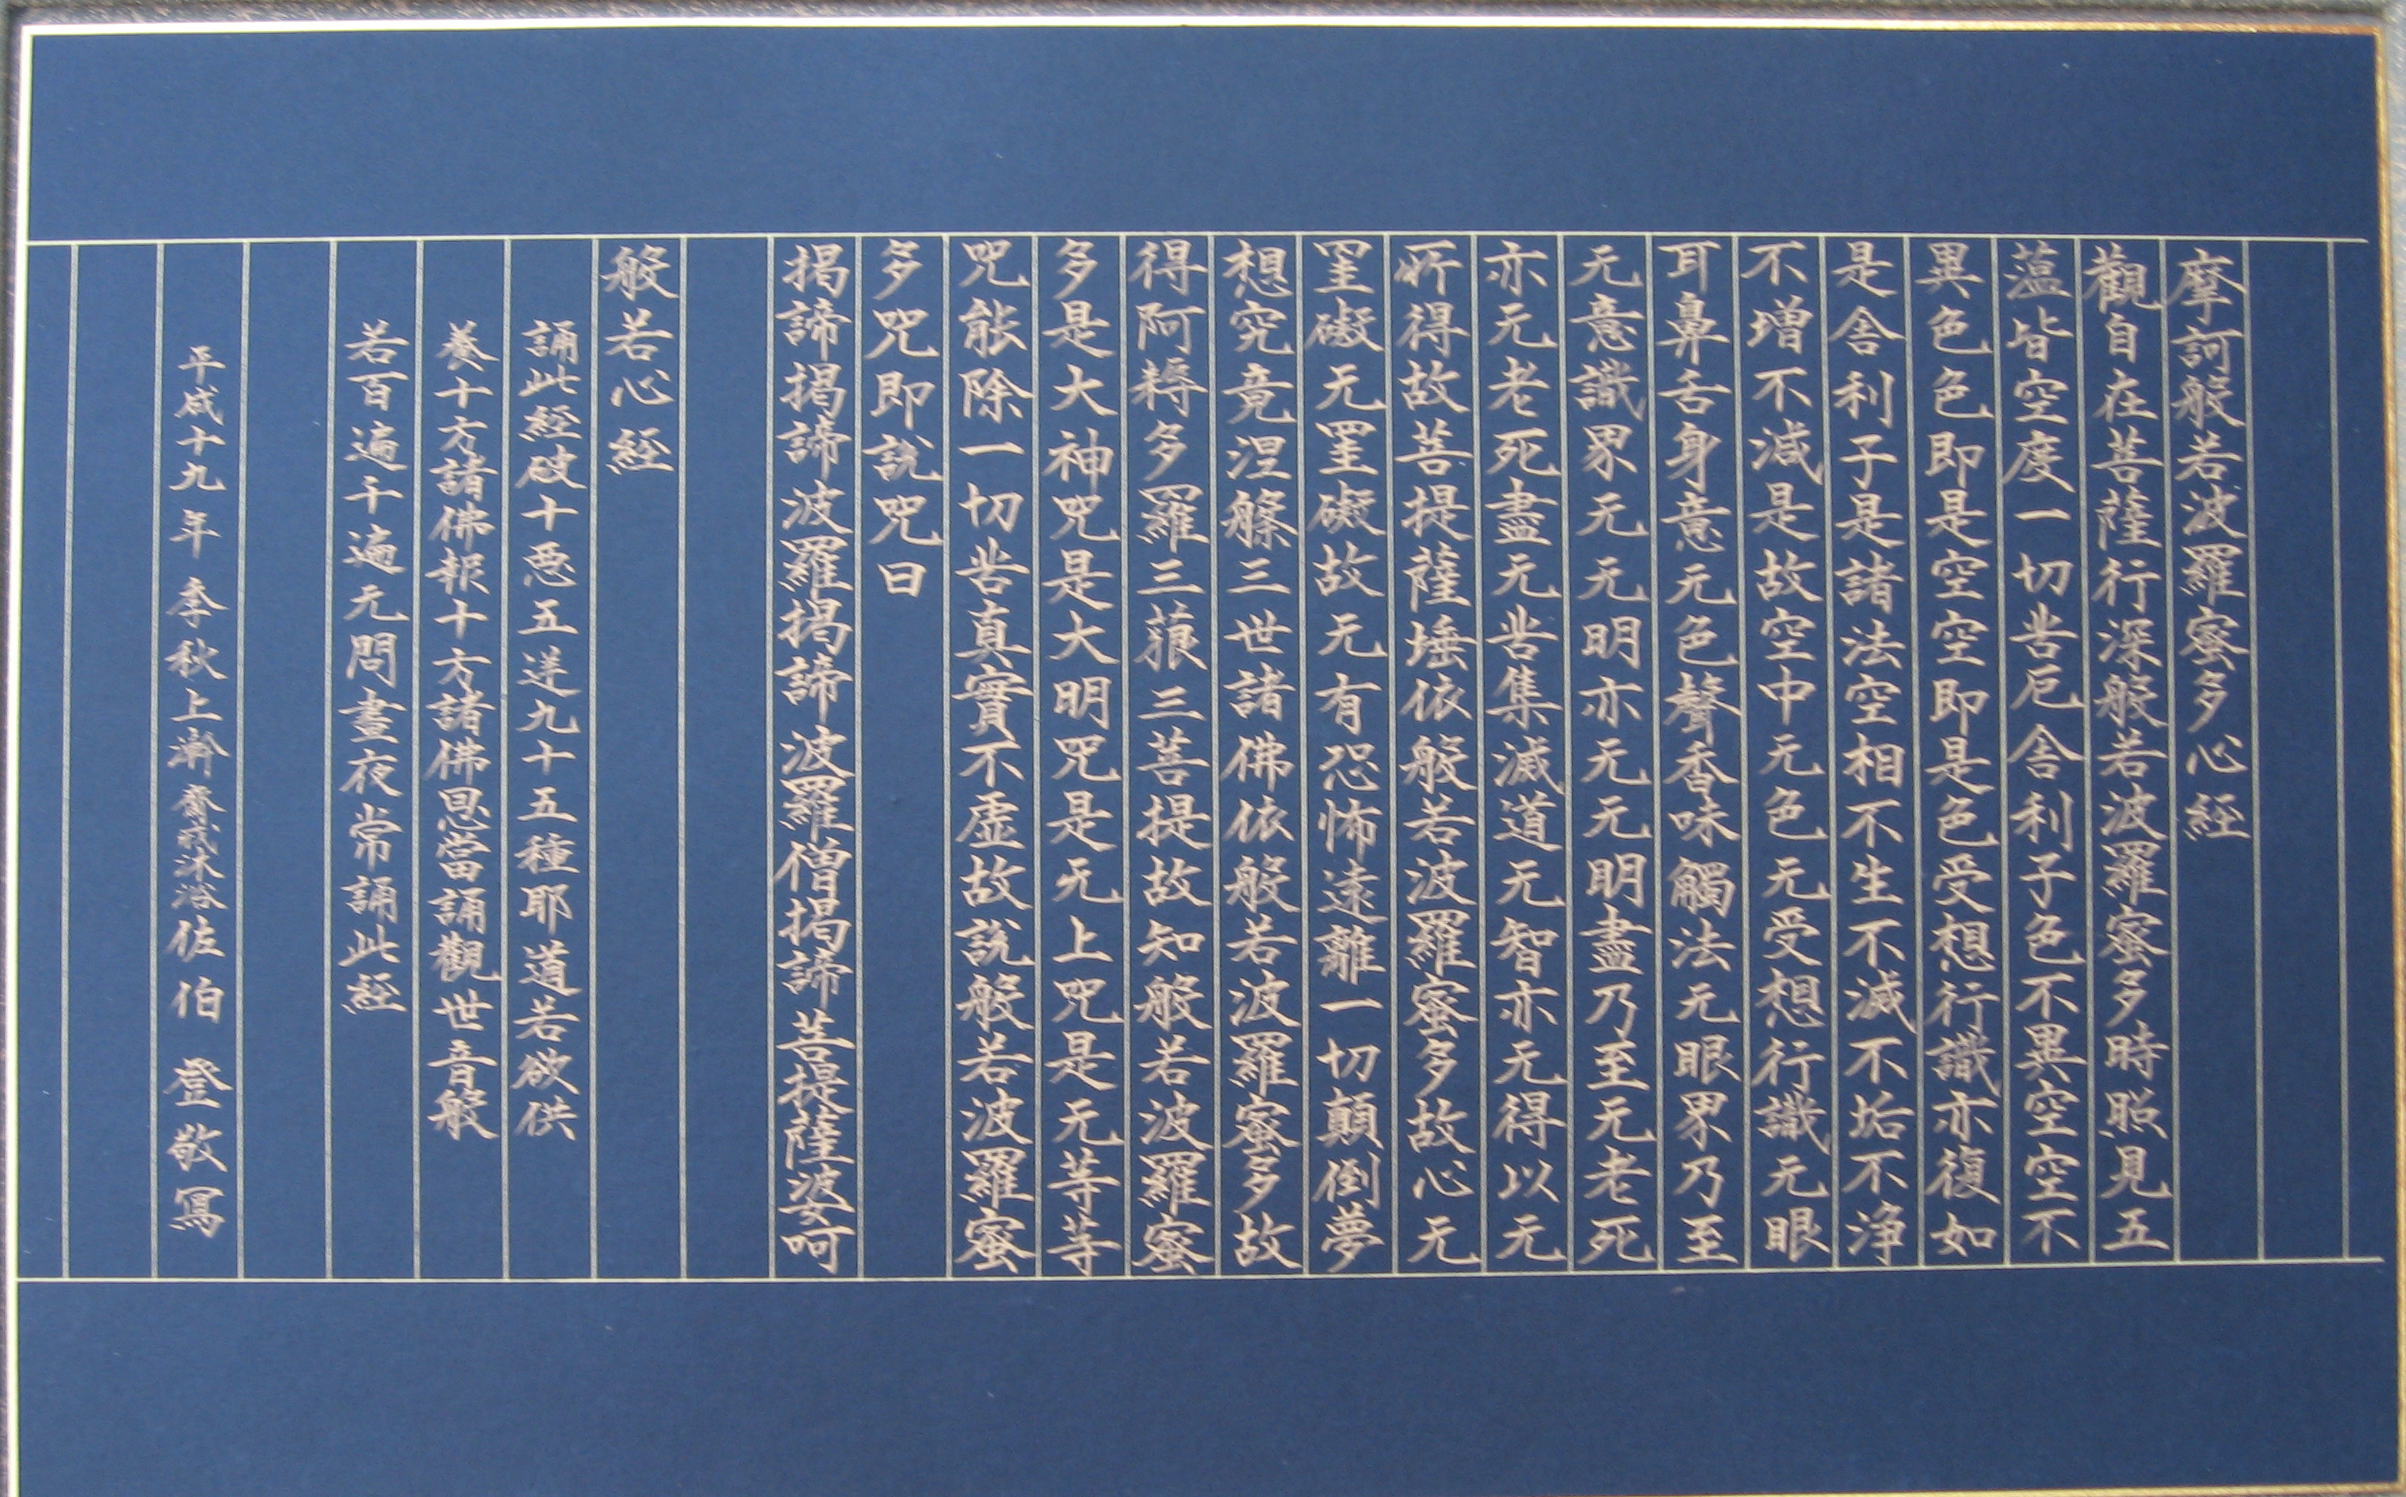 摩訶般若波羅蜜多心経
觀自在菩薩行深般若波羅蜜多時照見五
薀皆空度一切苦厄舎利子色不異空空不
異色色即是空空即是色受想行識亦復如
是舎利子是諸法空相不生不滅不垢不浄
不増不減是故空中无色无受想行識无眼
耳鼻舌身意无色聲香味觸法无眼界乃至
无意識界无无明亦无无明盡乃至无老死
亦无老死盡无苦集滅道无智亦无得以无
所得故菩提薩埵依般若波羅蜜多故心无
罣礙无罣礙故无有恐怖遠離一切顛倒夢
想究竟涅槃三世諸佛依般若波羅蜜多故
得阿耨多羅三藐三菩提故知般若波羅蜜
多是大神咒是大明咒是无上咒是无等等
咒能除一切苦真實不虚故説般若波羅蜜
多咒即説咒曰
揭諦揭諦波羅揭諦波羅僧揭諦菩提薩婆呵
般若心経
誦此経破十惡五逆九十五種耶道若欲供
養十方諸佛報十方諸佛恩當誦觀世音般
若百遍千遍无問晝夜常誦此経
平成十九年季秋上澣齋戒沐浴佐伯登敬寫